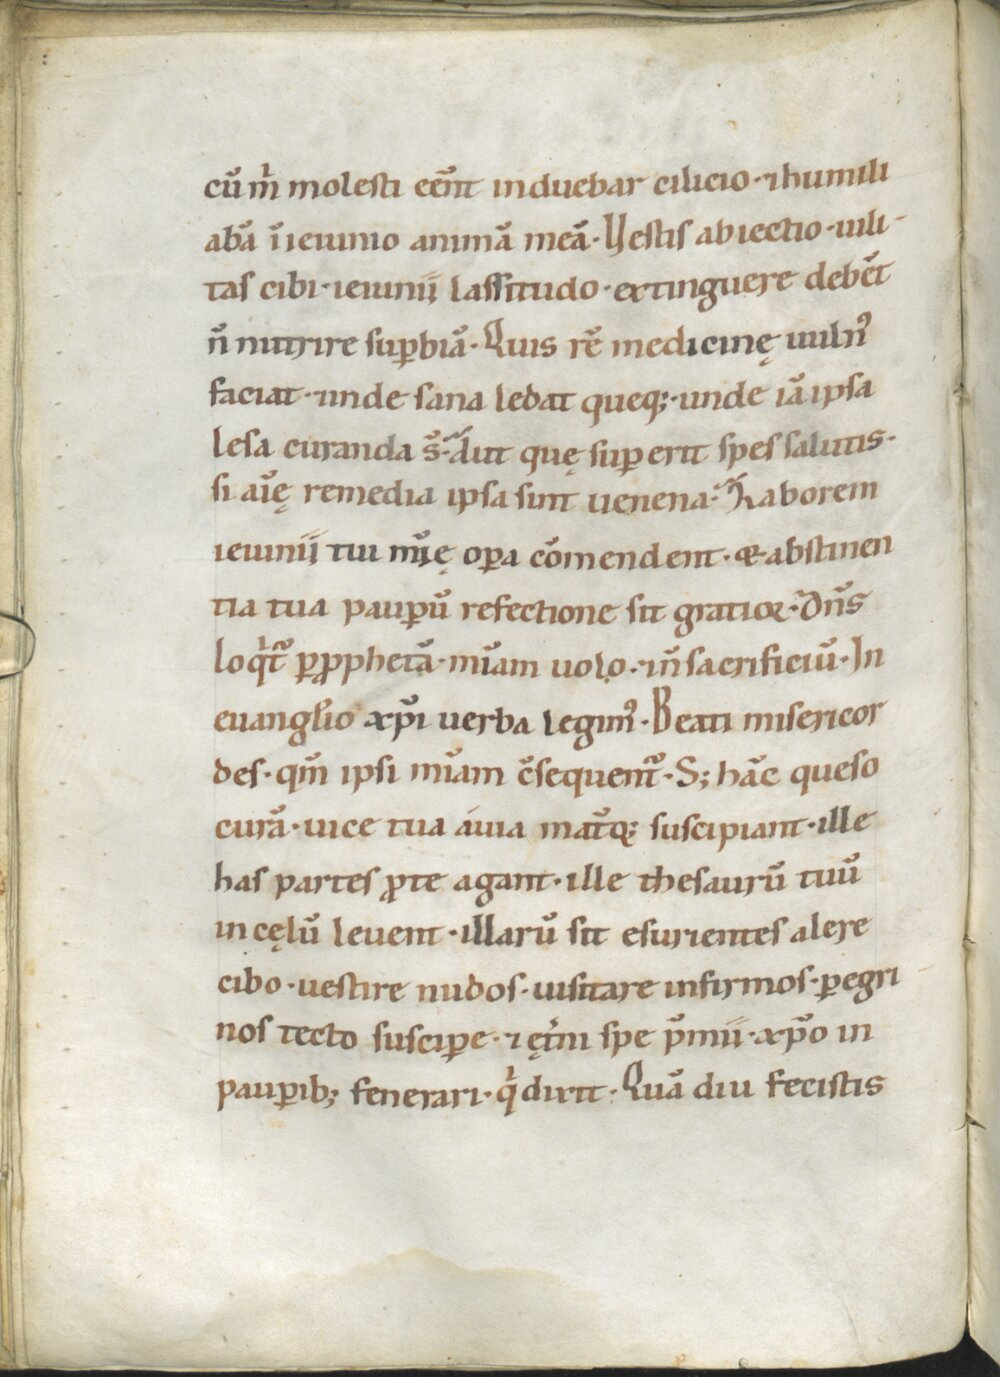 cū m̄ molesti eēnt induebar cilicio · ⁊ humili
abā ī ieiunio animā meā · Vestis abiectio · uili-
tas cibi · ieiunii lassitudo · extinguere debēt
n̄ nutrire suꝑbiā · Quis rē medicinę uuln᾽
faciat · unde sana ledat queq; · unde iā ipsa
lesa curanda s̄ · Aut quę suꝑerit spes salutis ·
si aīę remedia ipsa sunt uenena · Laborem
ieiunii tui mīę oꝑa cōmendent · & abstinen
tia tua pauꝑū refectione sit gratioꝛ · Dn̄s
loqͥt᷑ ꝑ ꝓphetā · mīam uolo · ⁊ n̄ sacrificiū · In
euangl̄io xp̄i uerba legim᾽ · Beati misericor
des · qm̄ ipsi mīam c̄sequent᷑ · S; hāc queso
curā · uice tua auia mat̄q; suscipiant · ille
has partes ꝓ te agant · ille thesaurū tuū
in cęlū leuent · illarū sit esurientes alere
cibo · uestire nudos · uisitare infirmos · ꝑegri
nos tecto susciꝑe · ⁊ ęt̄ni spe p̄mii · xp̄o in
pauꝑib; fenerari · qͥ dixit · Quā diu fecistis